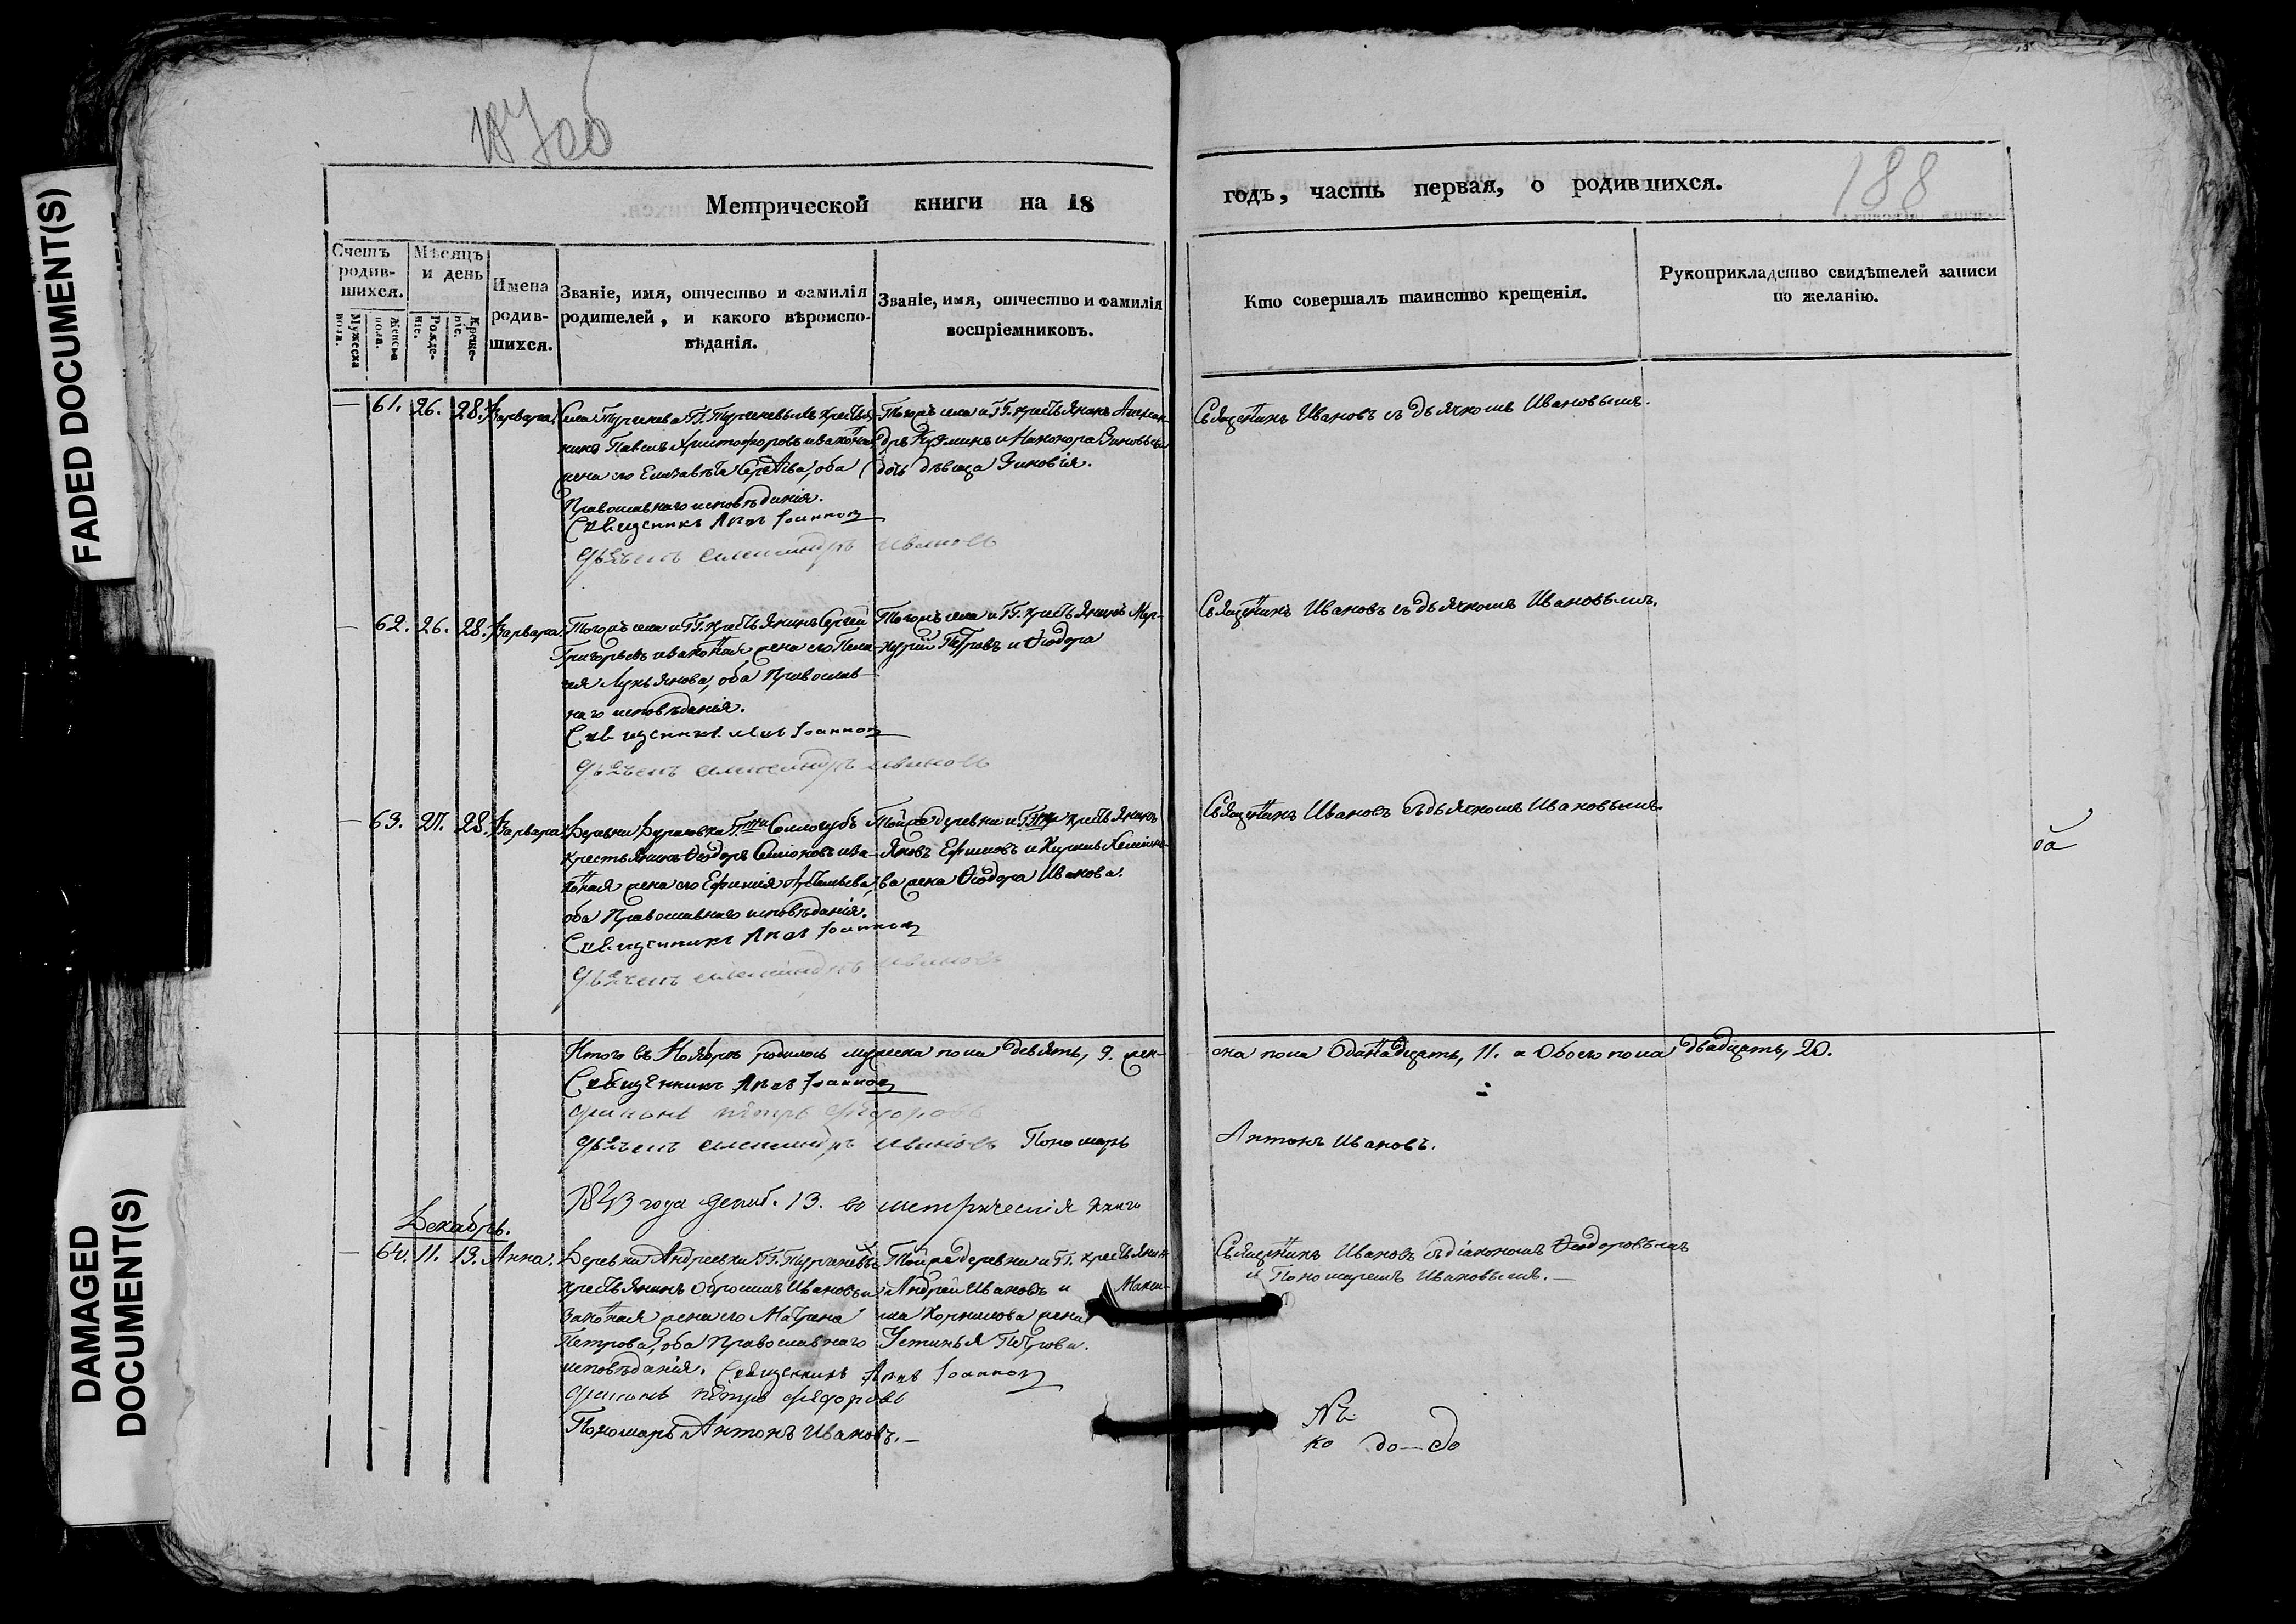 FADED DOCUMENT(S)
DAMAGED
DOCUMENT(S)
188
Метрической книги на 18 годъ, часть первая, о родившихся.
Счетъ родив-
шихся.
Мужеска пола.
Женска пола.
Мѣсяцъ и день
Рожде-
ніе.
Креще-
ніе.
Имена
родив-
шихся.
Званіе, имя, отчество и фамилія
родителей, и какого вѣроиспо-
вѣданія.
Званіе, имя, отчество и фамилія
воспріемниковъ.
Кто совершалъ таинство крещенія.
Рукоприкладство свидѣтелей записи
по желанію.
— 61. 26. 28. Варвара.
Села Тургенева ГГ. Тургеневыхъ крестья-
нинъ Павелъ Христофоровъ и законная
жена его Елизавета Сергѣева, оба
Православнаго исповѣданія.
Священникъ Іоанновъ
Дьячекъ Александръ Ивановъ
Тогожъ села и ГГ. крестьянинъ Алексан-
дръ Кузминъ и Никонора Зиновьева
дочь дѣвица Зиновія.
Священникъ Ивановъ съ дьячкомъ Ивановымъ.
— 62. 26. 28. Варвара.
Тогожъ села и ГГ. крестьянинъ Сергей
Григорьевъ и законная жена его Пела-
гея Лукьянова, оба Православ-
наго исповѣданія.
Священникъ Іоанновъ
Дьячекъ Александръ Ивановъ
Тогожъ села и ГГ. крестьянинъ Мер-
курій Петровъ и Ѳеодора
Священникъ Ивановъ съ дьячкомъ Ивановымъ.
— 63. 27. 28. Варвара.
Деревни Сологубъ
крестьянинъ Ѳеодоръ Семіоновъ и за-
конная жена его Ефимія
оба Православнаго исповѣданія.
Священникъ Іоанновъ
Дьячекъ Александръ Ивановъ
Тойже деревни и крестьянинъ
Яковъ Ефимовъ и
ва жена Ѳеодора Иванова.
Священникъ Ивановъ съ дьячкомъ Ивановымъ.
Итого въ Ноябрѣ родилось мужеска пола девять, 9. жен-
ска пола одиннадцать, 11. а обоего пола двадцать, 20.
Священникъ Іоанновъ
Діаконъ Петръ Федоровъ
Дьячекъ Александръ Ивановъ Пономарь
Антонъ Ивановъ.
1843 года декаб. 13.
Декабрь.
— 64. 11. 13. Анна.
Деревни Андреевки ГГ. Тургеневыхъ
крестьянинъ Обросимъ Ивановъ и
законная жена его Матрена
Петрова, оба Православнаго
исповѣданія. Священникъ Іоанновъ
Діаконъ Петръ Федоровъ
Пономарь Антонъ Ивановъ.—
Тойже деревни и ГГ. крестьянинъ
Андрей Ивановъ и Макси-
ма Корнилова жена
Устинья Петрова.
Священникъ Ивановъ съ діакономъ Ѳеодоровымъ
и Пономаремъ Ивановымъ.—